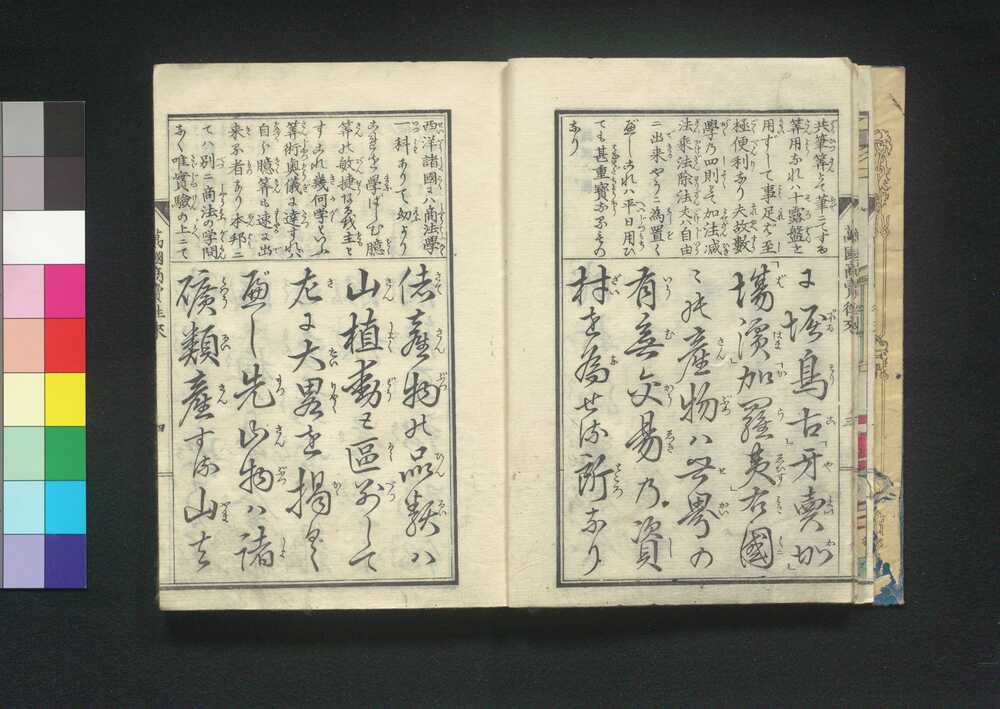 共筆算とて筆にてする
算用なれハ十露盤を
用ずして事足ぬ至
極便利なり夫故數
學乃四則とて加法減
法乘法除法丈ハ自由
ニ出来やうニ為置く
べしこれハ平日用ひ
ても甚重寶なるもの
なり
に堀烏古牙賣加
塲濱加羅夷右國
之産物ハ世界の
有無交易乃資
材を為せる所なり
萬國商賣往來
三
西洋諸國にハ商法學
一科ありて幼より
これを學ばしむ臆
算の敏捷なるを主と
すこれ幾何学といふ
算術奥儀に達すれバ
自ら臆算も速に出
来る者なり本邦ニ
てハ別ニ商法の学問
なく唯實驗の上ニて
偖産物の品類ハ
山植動と區別して
左に大畧を掲ぐ
べし先山物ハ諸
礦類産する山を
萬國商賣往來
四